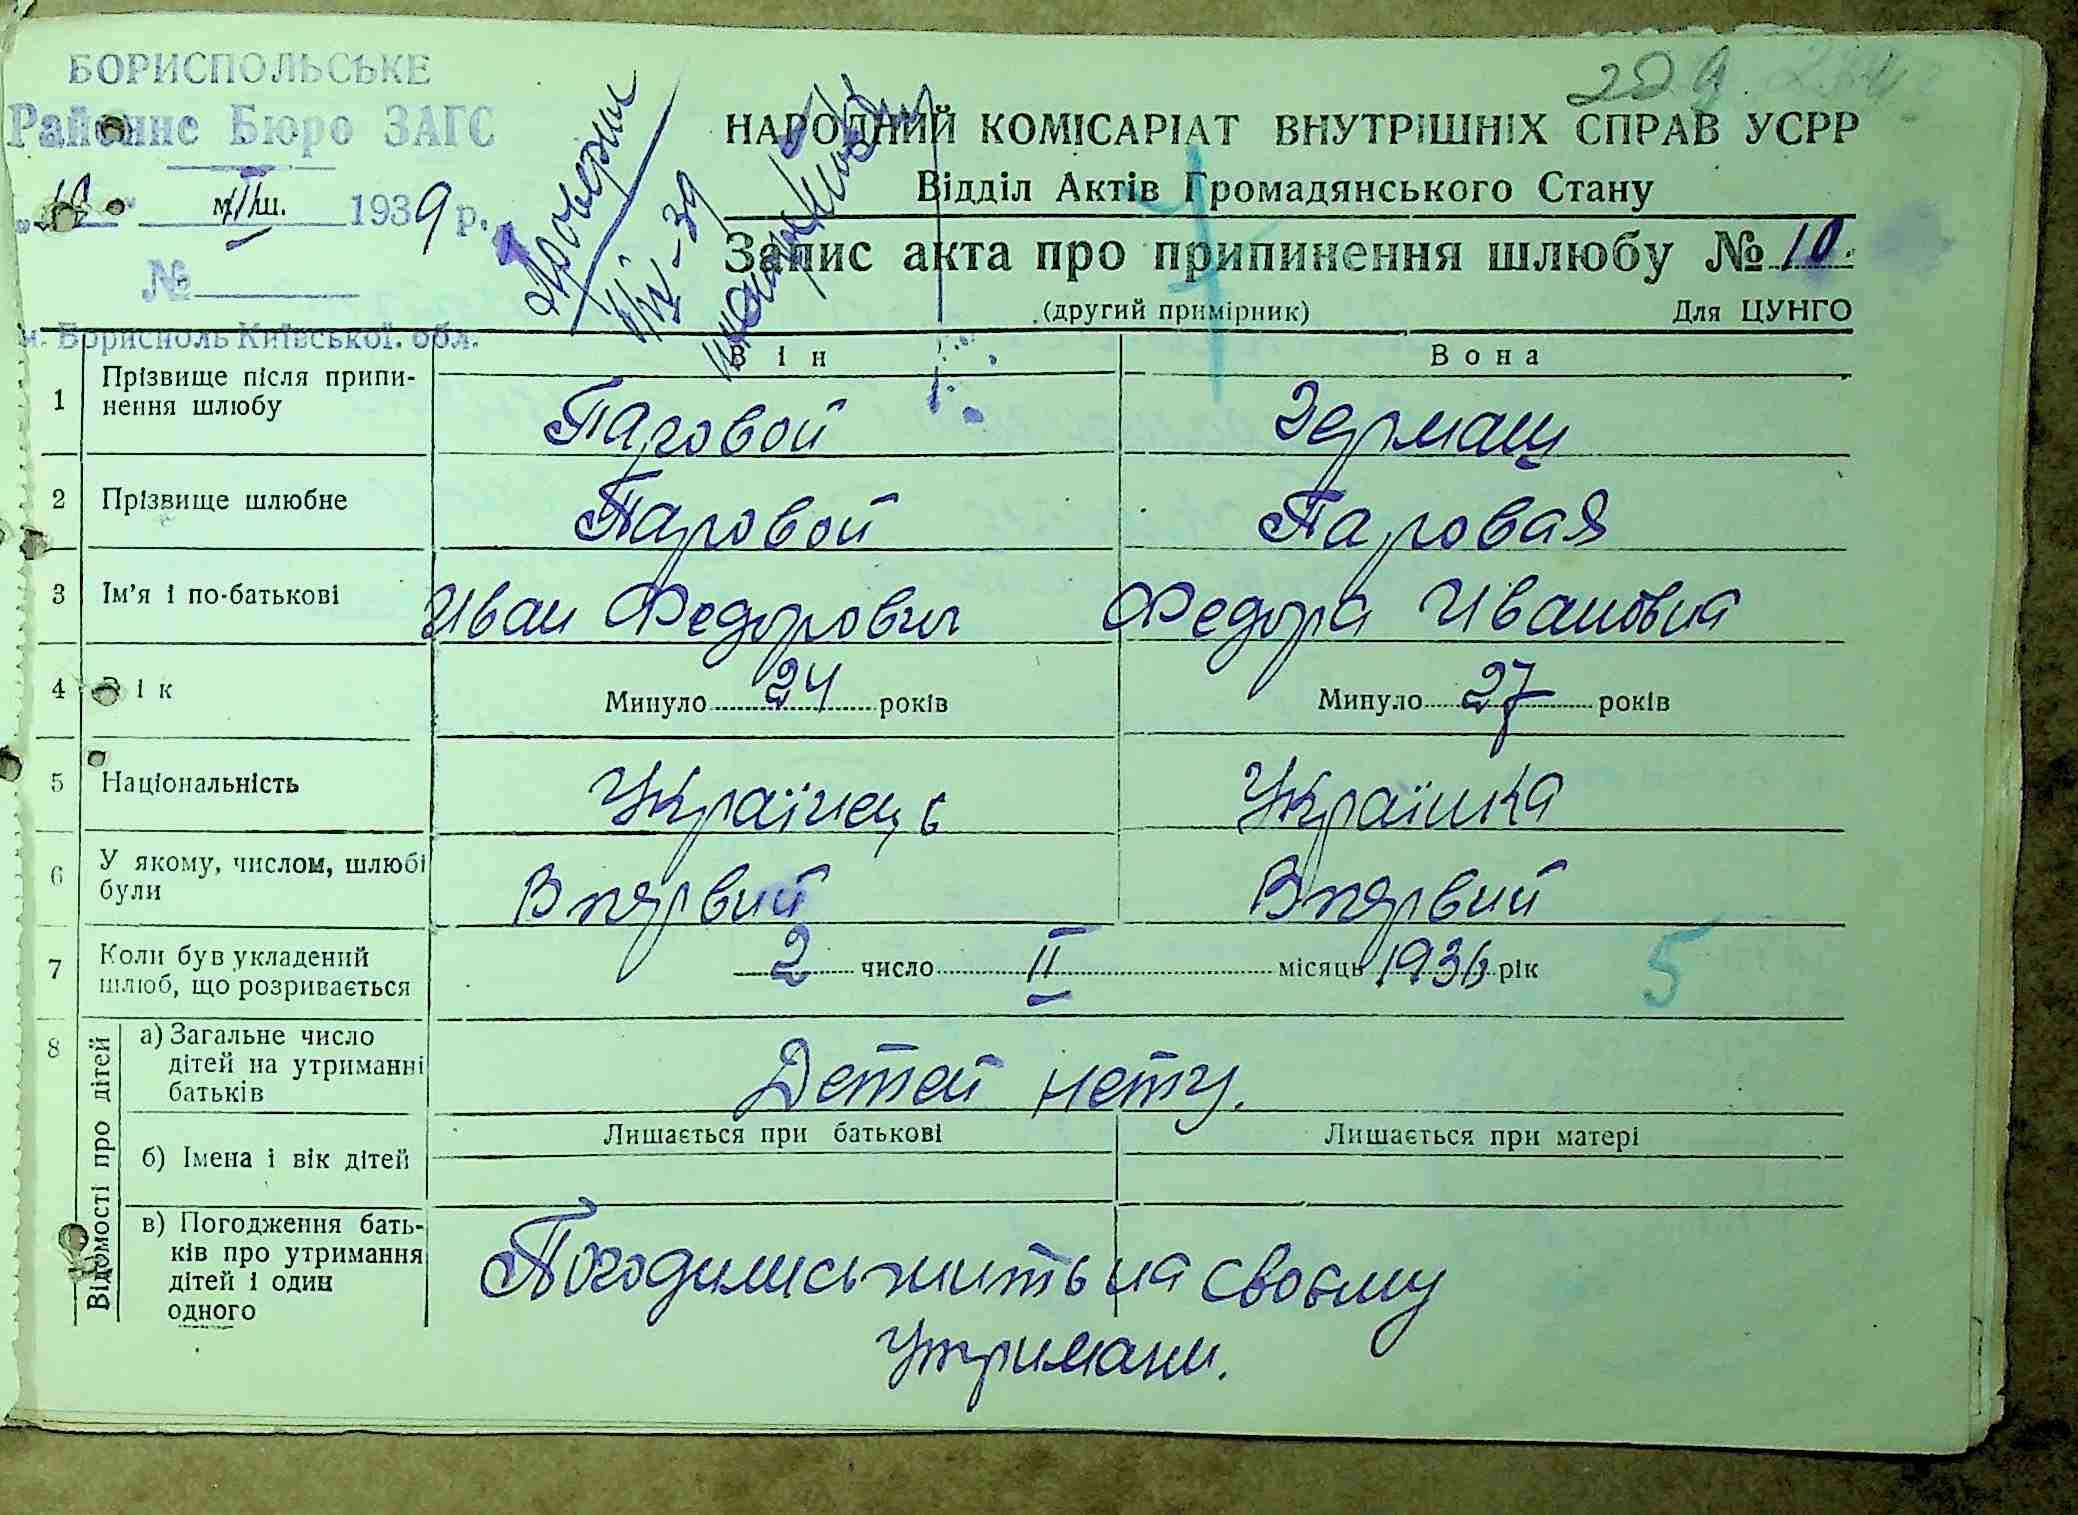 БОРИСПОЛЬСЬКЕ
Районне Бюро ЗАГС
1939 р.
№
м. Борисполь Київської. обл.
Проверил
229
НАРОДНИЙ КОМІСАРІАТ ВНУТРІШНІХ СПРАВ УСРР
Відділ Актів Громадянського Стану
Запис акта про припинення шлюбу № 10
(другий примірник) Для ЦУНГО
Він Вона
1 Прізвище після припи-
нення шлюбу
Паровой Зермащ
2 Прізвище шлюбне Паровой Паровая
3 Ім'я і по-батькові Иван Федорович Федора Ивановна
4 Вік Минуло 24 років Минуло 27 років
5 Національність Українець Українка
6 У якому, числом, шлюбі
були
Впярвий Впярвий
7 Коли був укладений
шлюб, що розривається
2 число II місяць 1936 рік 5
8 Відомості про дітей
а) Загальне число
дітей на утриманні
батьків
Детей нету.
Лишається при батькові Лишається при матері
б) Імена і вік дітей
в) Погодження бать-
ків про утримання
дітей і один
одного
Погодились жить на своєму
утримани.